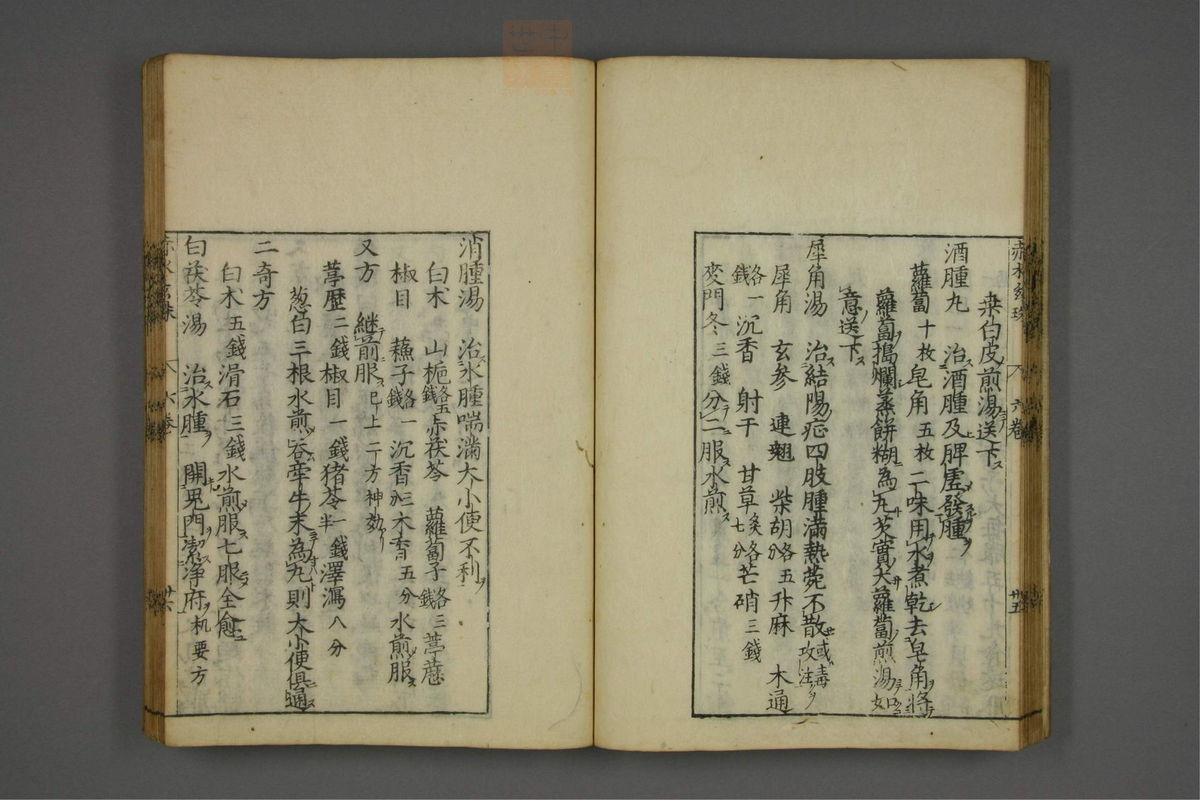 桒白皮煎湯送下
酒腫丸 治酒腫及脾虛發腫
蘿蔔十枚皂角五枚二味用水煮乾去皂角將
蘿蔔搗爛蒸餅糊為丸芡實大蘿蔔煎湯如
意送下
犀角湯 治結陽症四肢腫滿熱菀不散或毒攻注
犀角 玄參 連翹 柴胡各五分升麻 木通
各一錢沉香 射干 甘草各七分芒硝三錢
麥門冬三錢分二服水煎
六卷
廿五
消腫湯 治水腫喘滿大小便不利
白朮 山梔各五錢赤茯苓 蘿蔔子各三錢葶藶
椒目 蘓子各一錢沉香三分木香五分水煎服
又方 継前服已上二方神効
葶歷二錢椒目一錢猪苓一錢半澤瀉八分
葱白三根水煎吞牽牛末為丸則大小便俱通
二奇方
白朮五錢滑石三錢水煎服七服全愈
白茯苓湯 治水腫 開鬼門潔淨府机要方
六卷
廿六